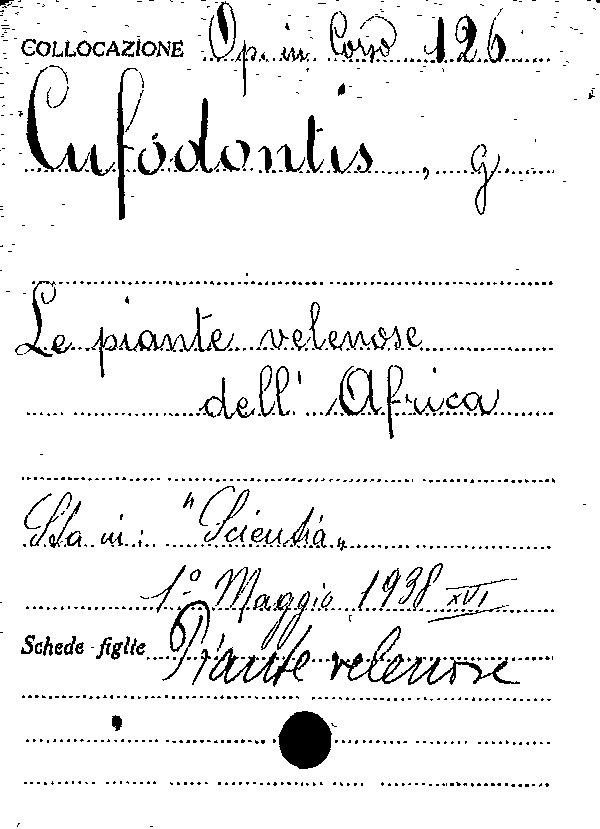 COLLOCAZIONE Op. in Corso 126
Cufodontis, G.
Le piante velenose
dell' Africa
Sta in: "Scientia„
1º Maggio 1938 XVI
Schede figlie Piante velenose